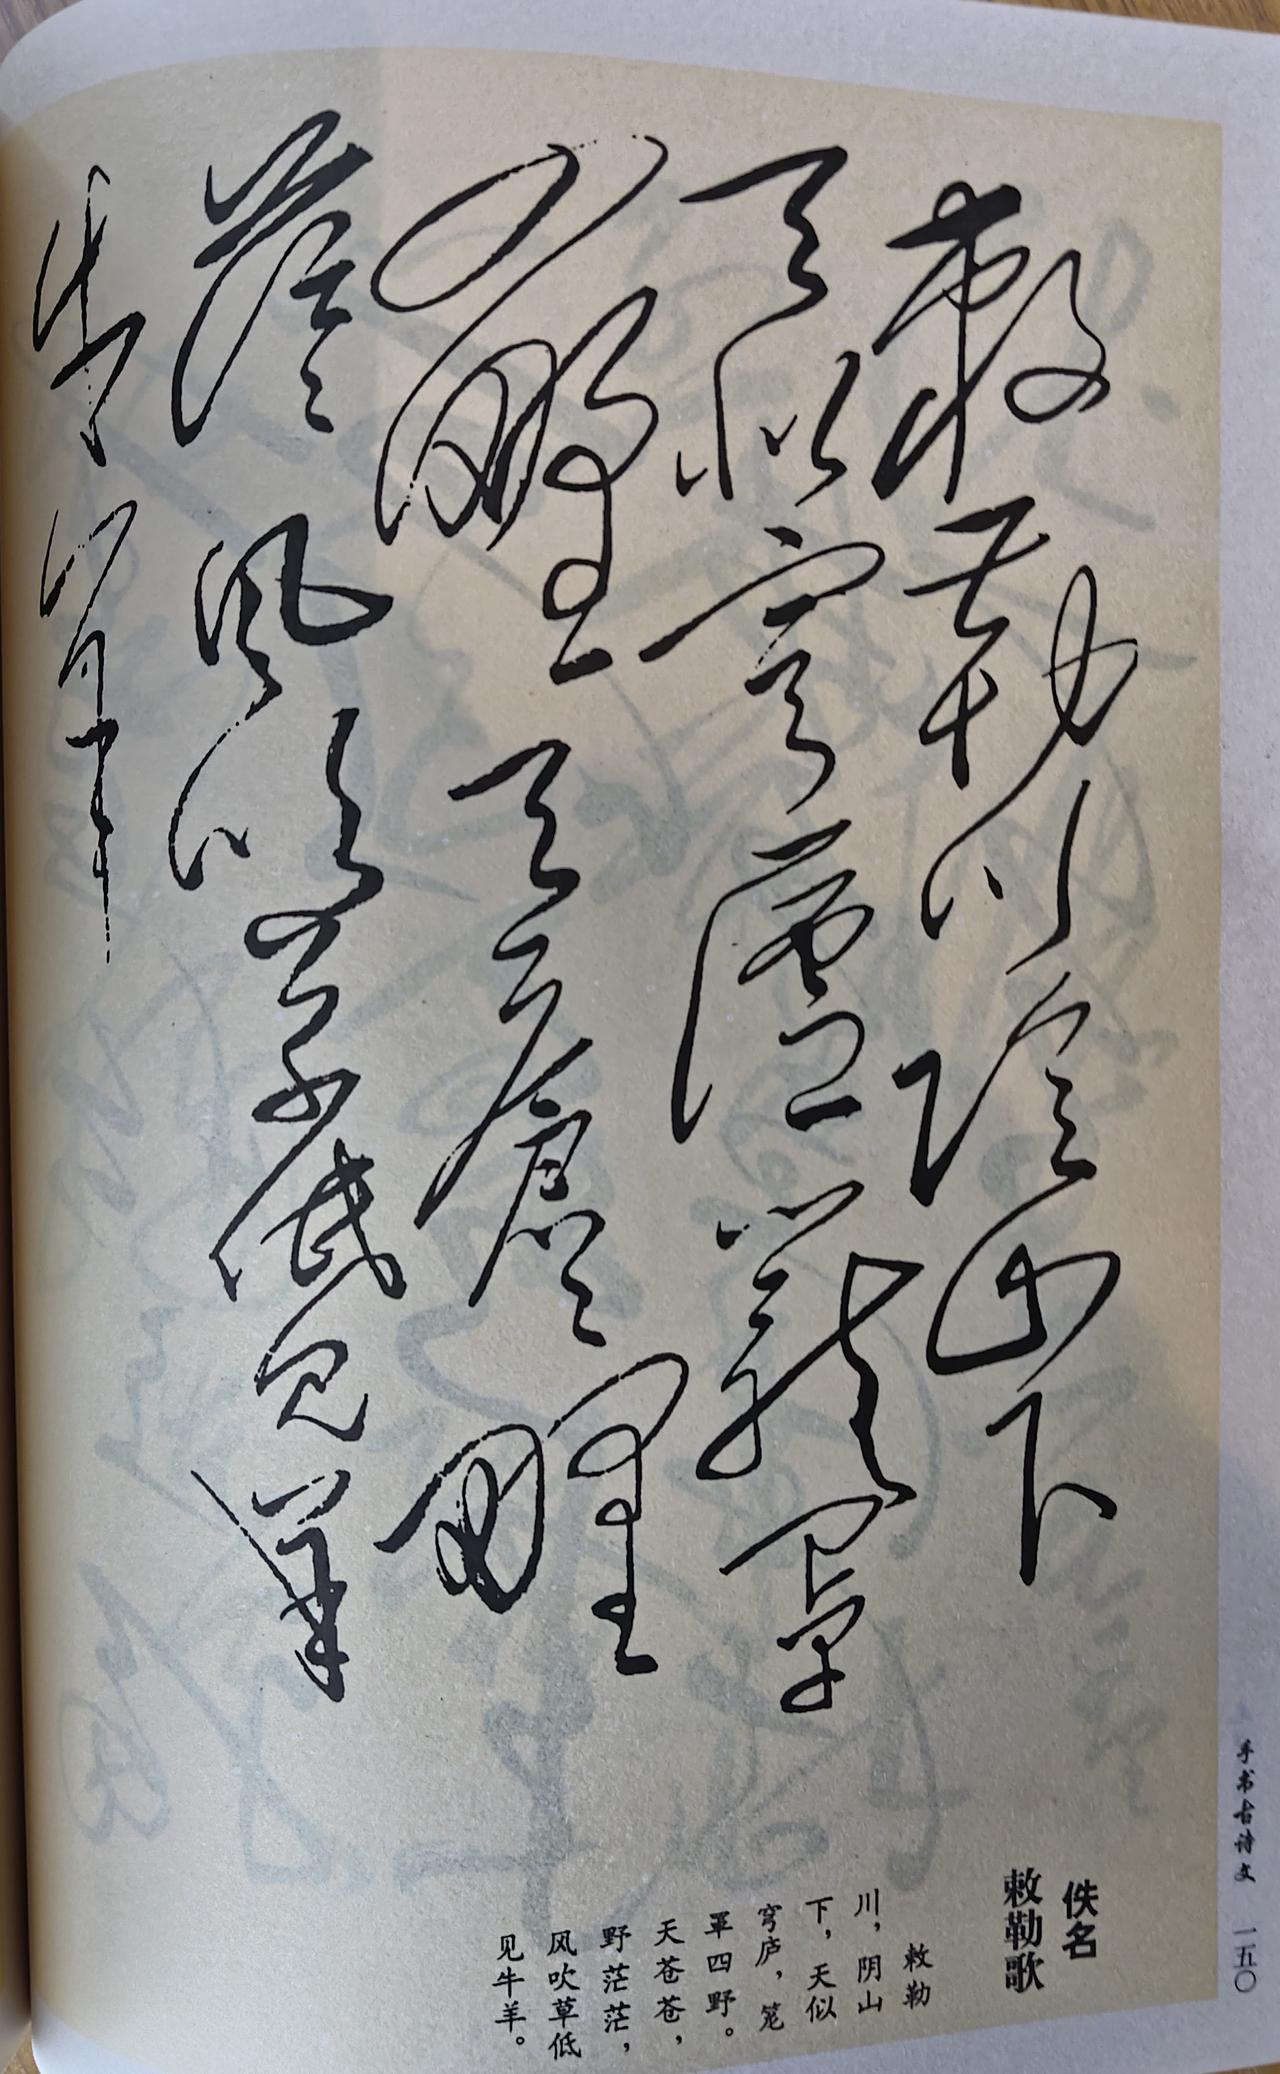 敕勒川陰山下
天似穹廬籠罩
四野天蒼蒼野
茫茫風吹草低見
佚名
敕勒歌
敕勒
川，阴山
下，天似
穹庐，笼
罩四野。
天苍苍，
野茫茫，
风吹草低
见牛羊。
手书古诗文 一五〇